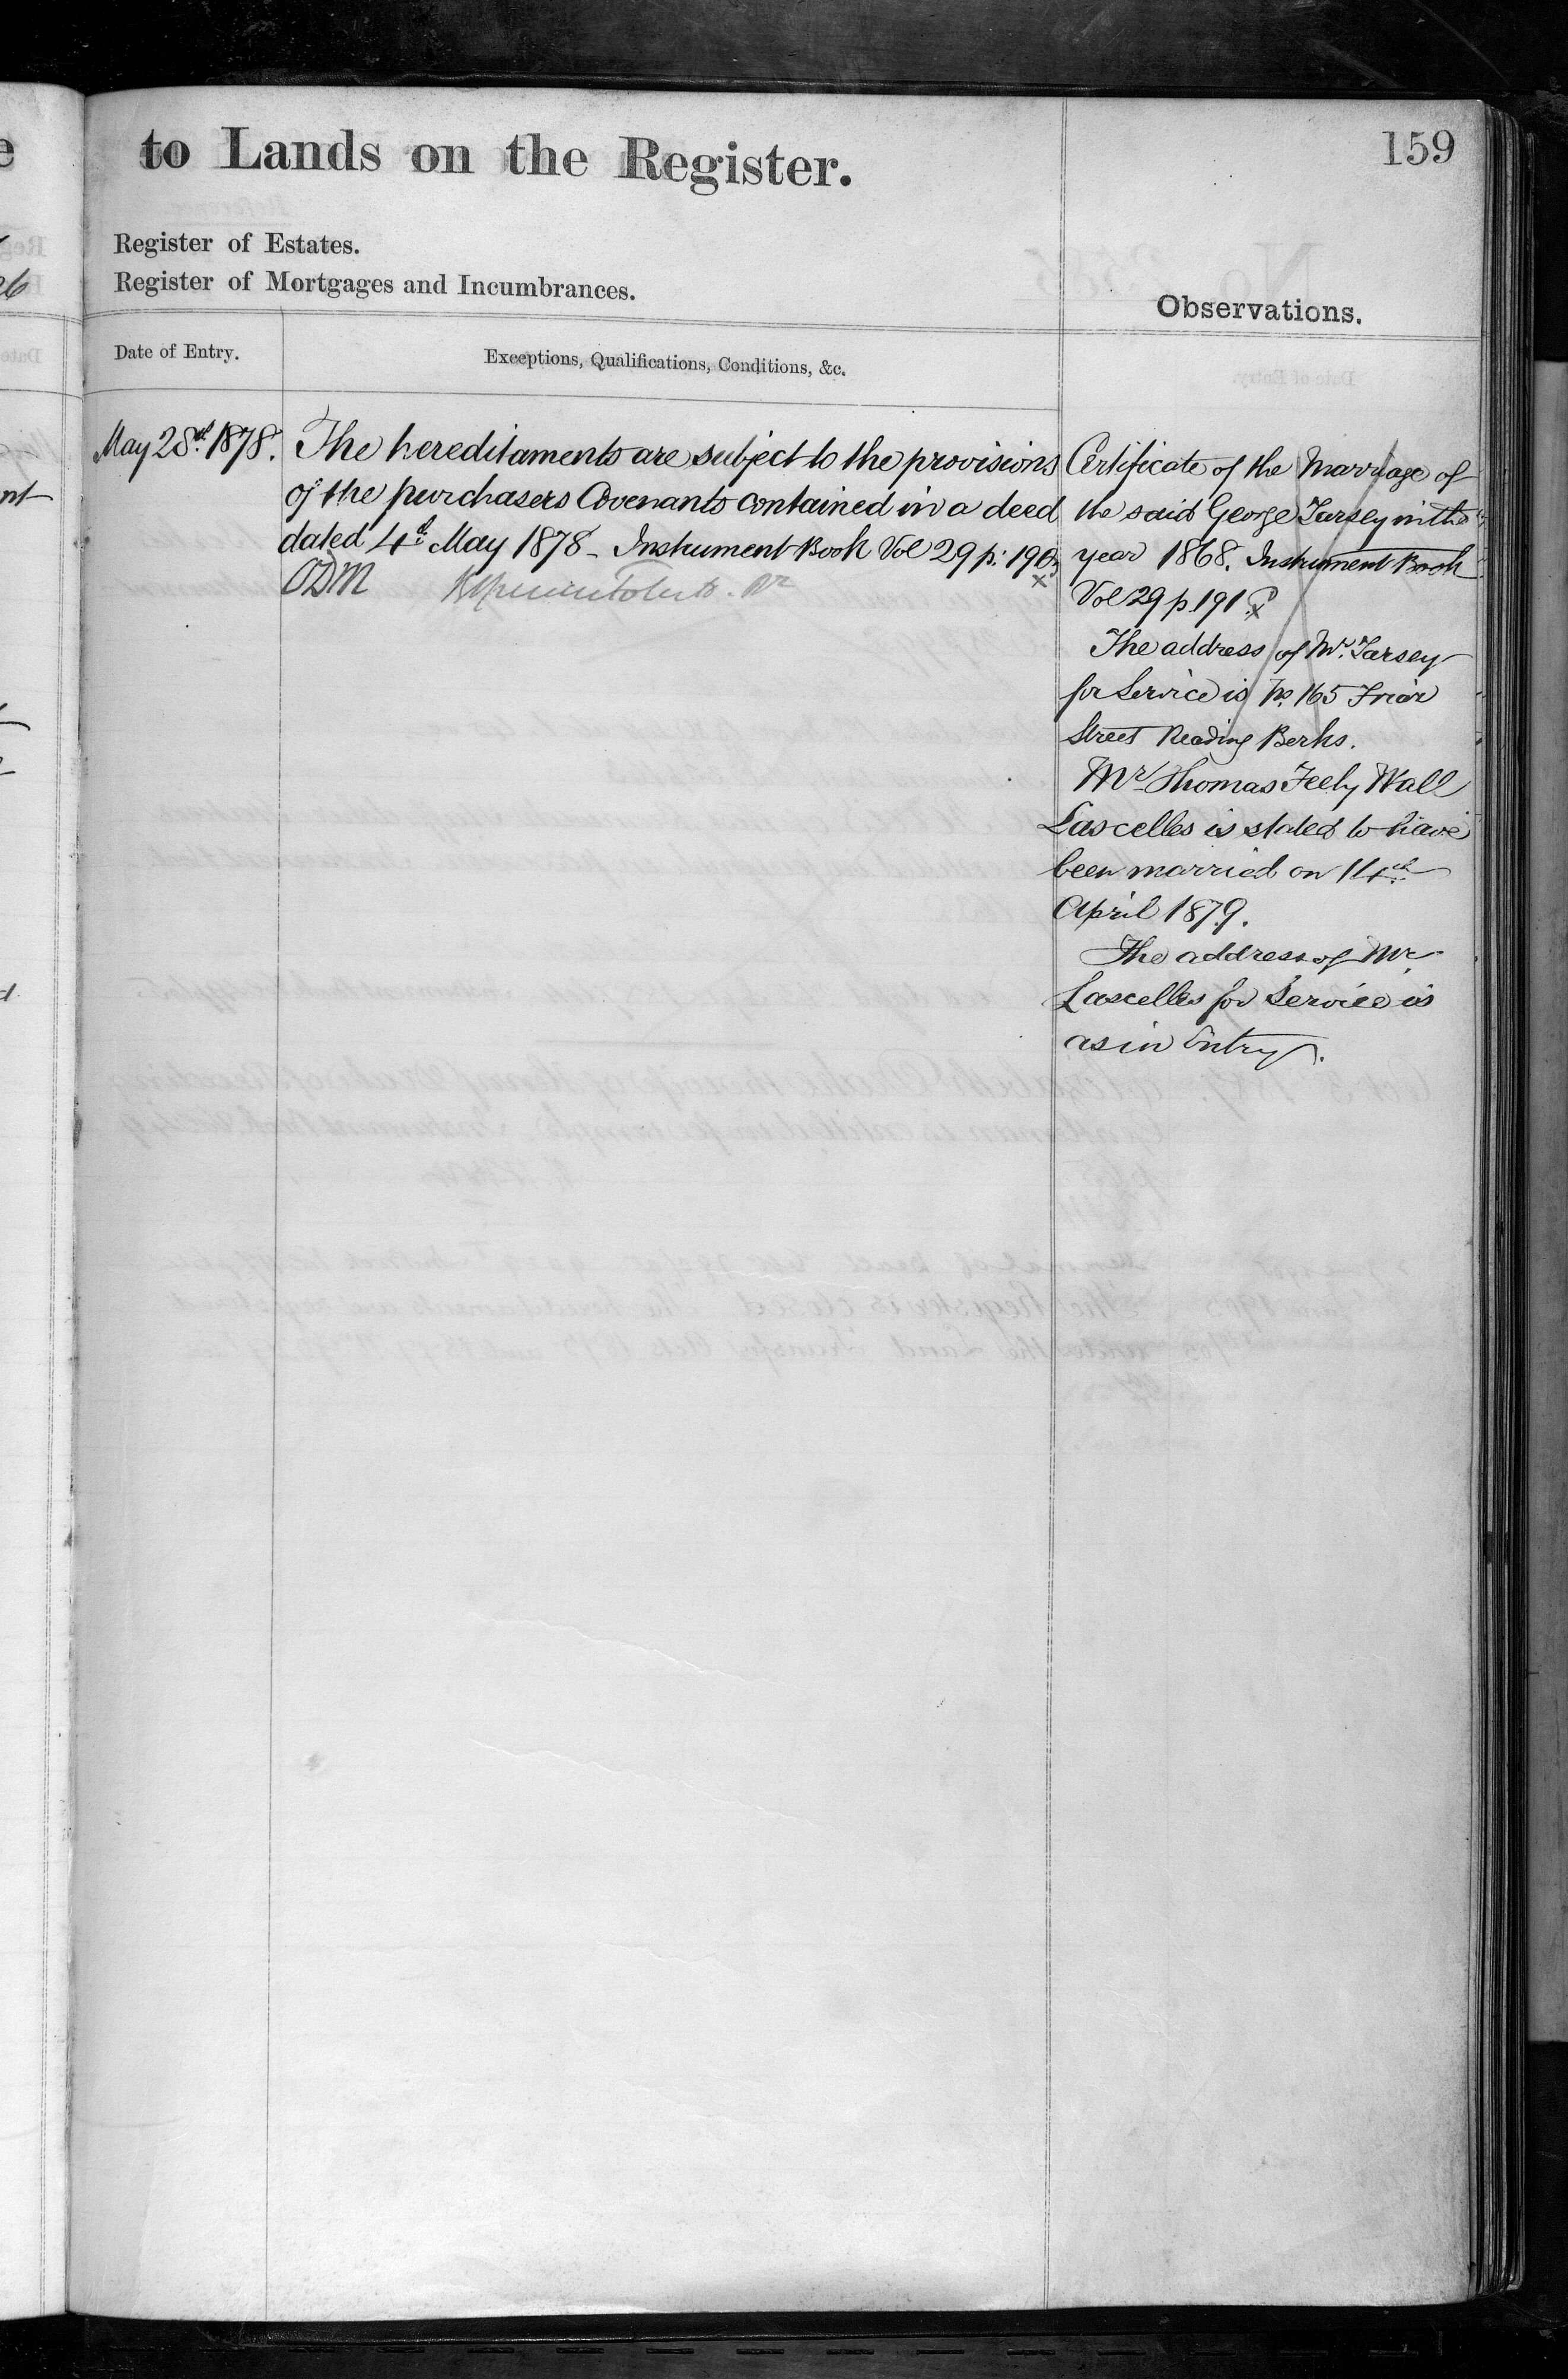 to Lands on the Register.
159
Register of Estates.
Register of Mortgages and Incumbrances.
Observations.
Date of Entry.
Exceptions, Qualifications, Conditions, &c.
May 28th 1878.
The hereditaments are subject to the provisions
of the purchasers Covenants contained in a deed
dated 4th May 1878 - Instrument Book Vol 29 p. 190
x
ODM
Certificate of the Marriage of
the said George Tarsey in the
year 1868. Instrument Book
Vol 29 p. 191
x
The address of Mr. Tarsey
for Service is No. 165 Friar
Street Reading Berks.
Mr Thomas Feely Wall
Lascelles is stated to have
been married on 14th
April 1879.
The address of Mr.
Lascelles for Service is
as in Entry.